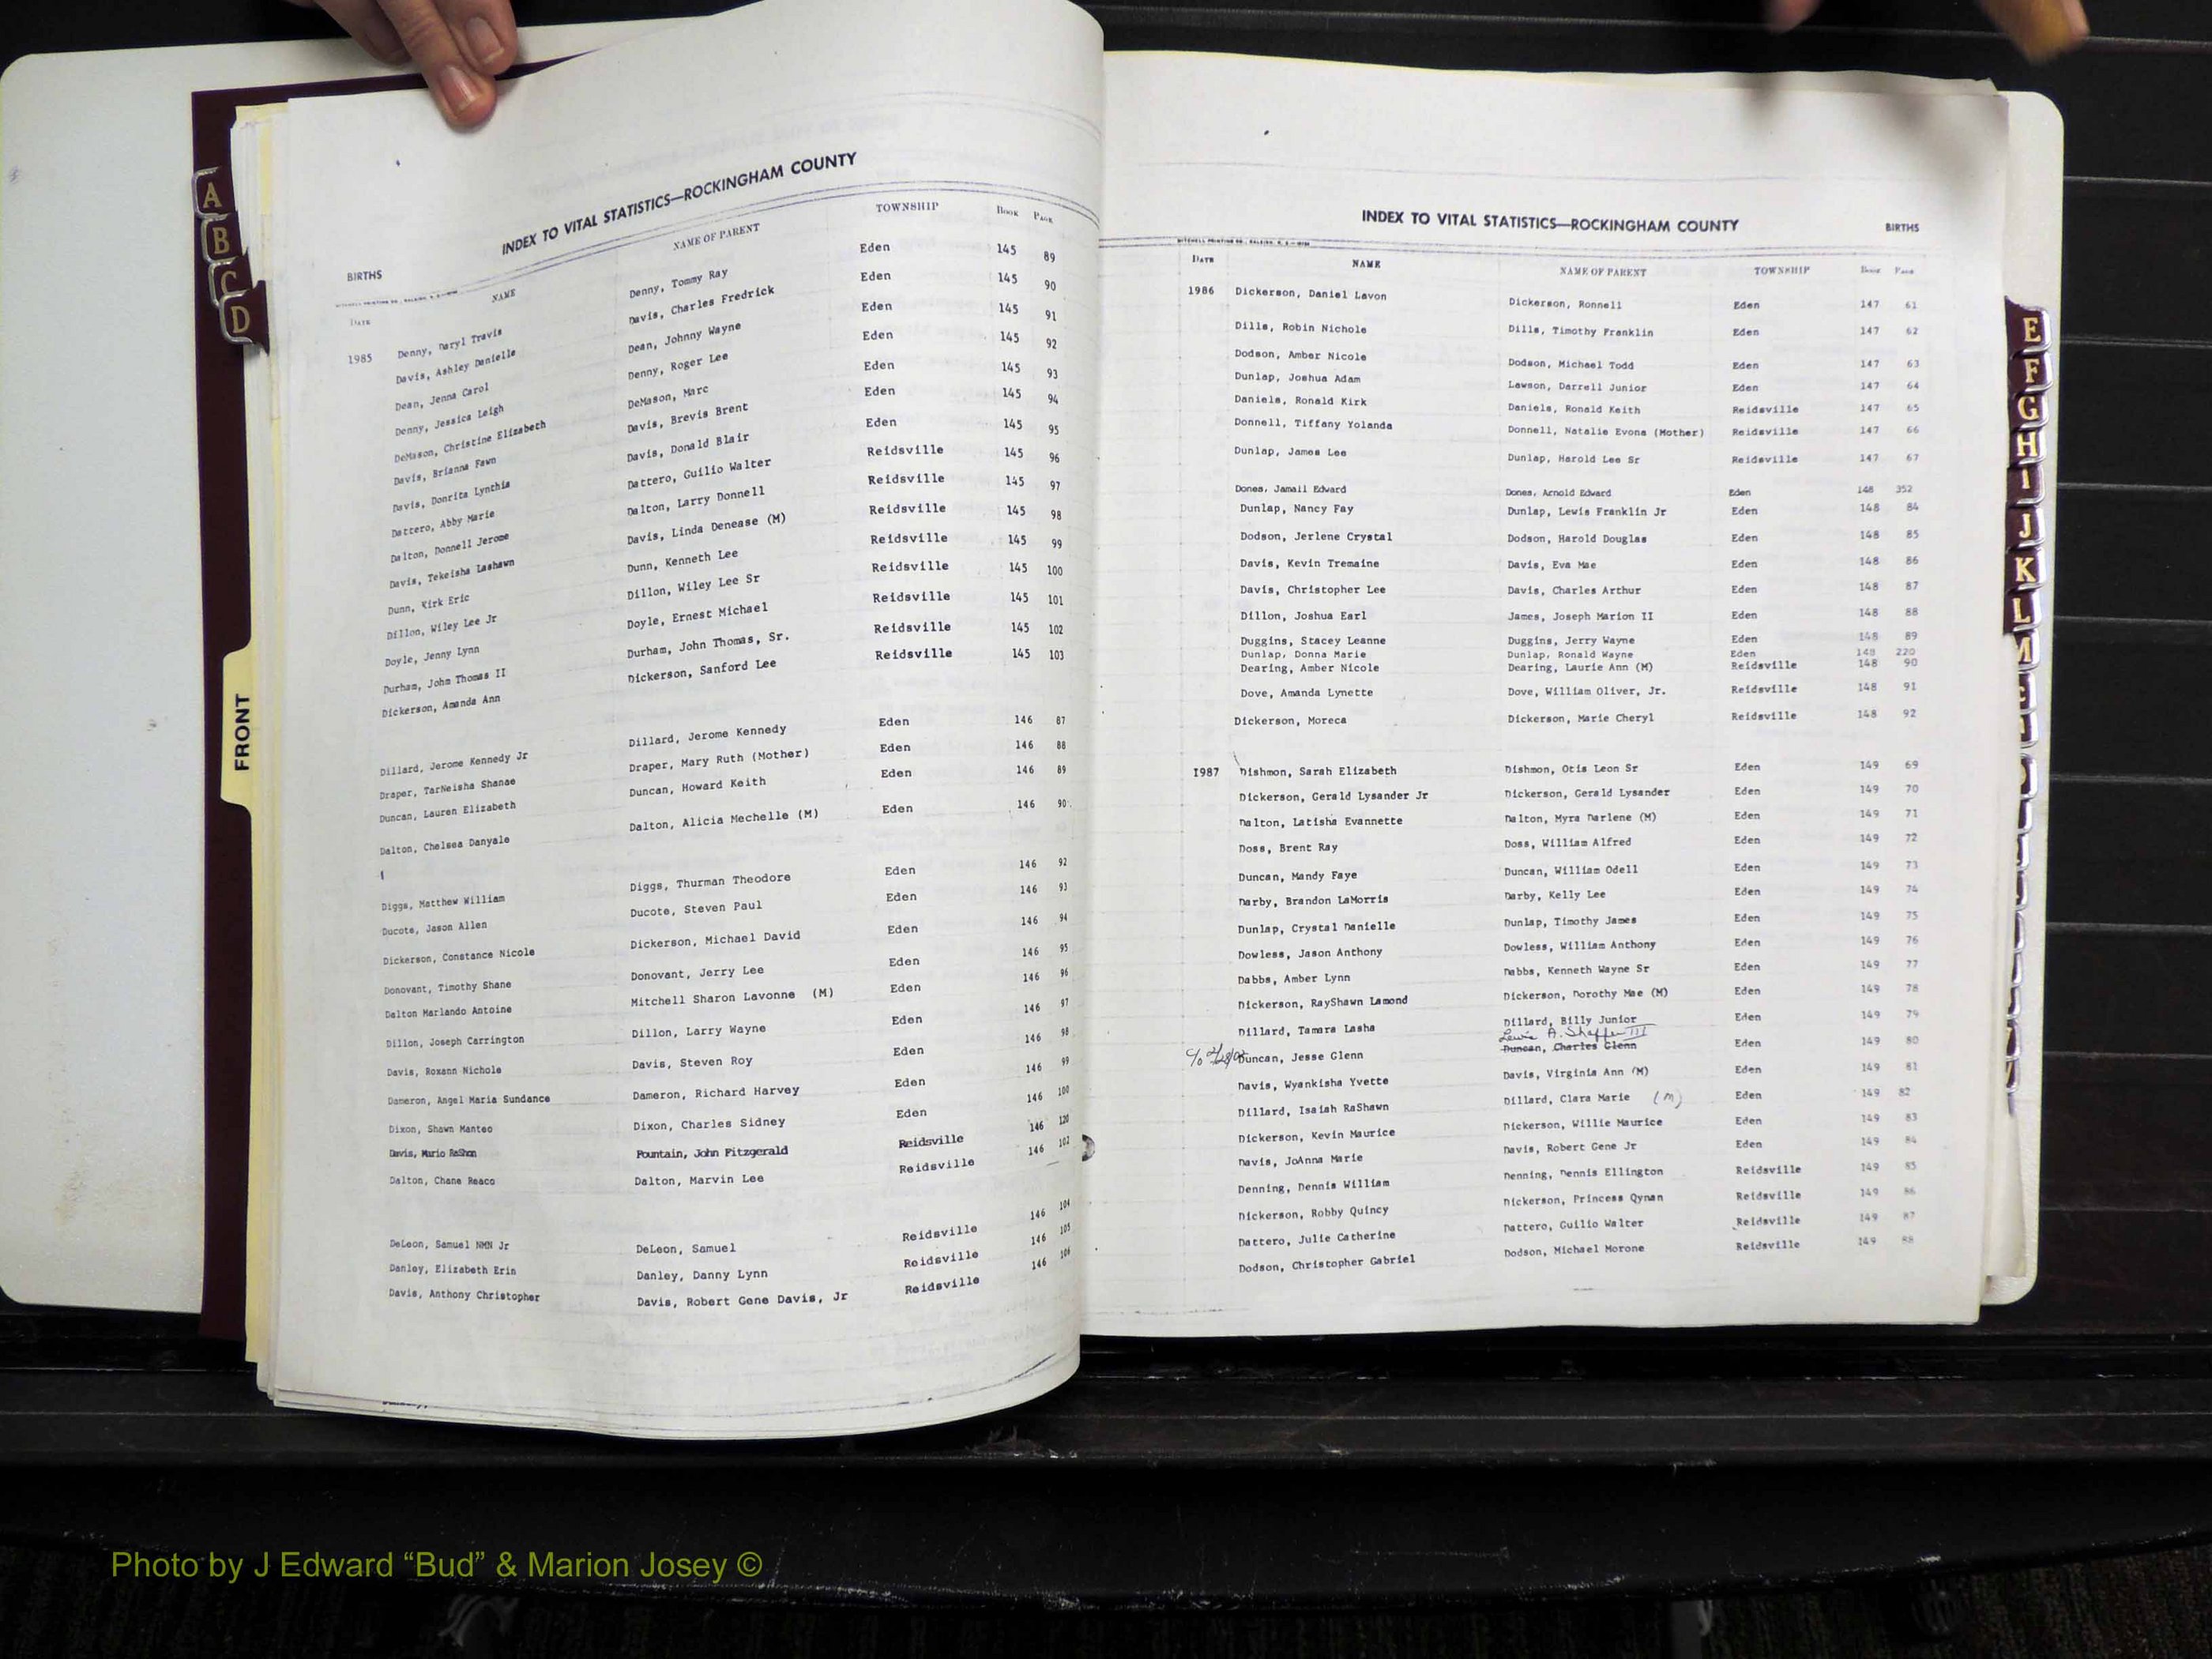 INDEX TO VITAL STATISTICS—ROCKINGHAM COUNTY
BIRTHS
DATE NAME NAME OF PARENT TOWNSHIP BOOK PAGE
1985 Denny, Daryl Travis Denny, Tommy Ray Eden 145 89
Davis, Ashley Danielle Davis, Charles Fredrick Eden 145 90
Dean, Jenna Carol Dean, Johnny Wayne Eden 145 91
Denny, Jessica Leigh Denny, Roger Lee Eden 145 92
DeMason, Christine Elizabeth DeMason, Marc Eden 145 93
Davis, Brianna Fawn Davis, Brevis Brent Eden 145 94
Davis, Donrita Lynthia Davis, Donald Blair Eden 145 95
Dattero, Abby Marie Dattero, Guilio Walter Reidsville 145 96
Dalton, Donnell Jerome Dalton, Larry Donnell Reidsville 145 97
Davis, Tekeisha Lashawn Davis, Linda Denease (M) Reidsville 145 98
Dunn, Kirk Eric Dunn, Kenneth Lee Reidsville 145 99
Dillon, Wiley Lee Jr Dillon, Wiley Lee Sr Reidsville 145 100
Doyle, Jenny Lynn Doyle, Ernest Michael Reidsville 145 101
Durham, John Thomas II Durham, John Thomas, Sr. Reidsville 145 102
Dickerson, Amanda Ann Dickerson, Sanford Lee Reidsville 145 103
Dillard, Jerome Kennedy Jr Dillard, Jerome Kennedy Eden 146 87
Draper, TarNeisha Shanae Draper, Mary Ruth (Mother) Eden 146 88
Duncan, Lauren Elizabeth Duncan, Howard Keith Eden 146 89
Dalton, Chelsea Danyale Dalton, Alicia Mechelle (M) Eden 146 90
Diggs, Matthew William Diggs, Thurman Theodore Eden 146 92
Ducote, Jason Allen Ducote, Steven Paul Eden 146 93
Dickerson, Constance Nicole Dickerson, Michael David Eden 146 94
Donovant, Timothy Shane Donovant, Jerry Lee Eden 146 95
Dalton Marlando Antoine Mitchell Sharon Lavonne (M) Eden 146 96
Dillon, Joseph Carrington Dillon, Larry Wayne Eden 146 97
Davis, Roxann Nichole Davis, Steven Roy Eden 146 98
Dameron, Angel Maria Sundance Dameron, Richard Harvey Eden 146 99
Dixon, Shawn Manteo Dixon, Charles Sidney Eden 146 100
Davis, Mario RaShon Fountain, John Fitzgerald Reidsville 146 120
Dalton, Chane Reaco Dalton, Marvin Lee Reidsville 146 102
DeLeon, Samuel NMN Jr DeLeon, Samuel Reidsville 146 104
Danley, Elizabeth Erin Danley, Danny Lynn Reidsville 146 105
Davis, Anthony Christopher Davis, Robert Gene Davis, Jr Reidsville 146 106
A
B
C
D
FRONT
INDEX TO VITAL STATISTICS—ROCKINGHAM COUNTY BIRTHS
DATE NAME NAME OF PARENT TOWNSHIP BOOK PAGE
1986 Dickerson, Daniel Lavon Dickerson, Ronnell Eden 147 61
Dills, Robin Nichole Dills, Timothy Franklin Eden 147 62
Dodson, Amber Nicole Dodson, Michael Todd Eden 147 63
Dunlap, Joshua Adam Lawson, Darrell Junior Eden 147 64
Daniels, Ronald Kirk Daniels, Ronald Keith Reidsville 147 65
Donnell, Tiffany Yolanda Donnell, Natalie Evona (Mother) Reidsville 147 66
Dunlap, James Lee Dunlap, Harold Lee Sr Reidsville 147 67
Dones, Jamail Edward Dones, Arnold Edward Eden 148 352
Dunlap, Nancy Fay Dunlap, Lewis Franklin Jr Eden 148 84
Dodson, Jerlene Crystal Dodson, Harold Douglas Eden 148 85
Davis, Kevin Tremaine Davis, Eva Mae Eden 148 86
Davis, Christopher Lee Davis, Charles Arthur Eden 148 87
Dillon, Joshua Earl James, Joseph Marion II Eden 148 88
Duggins, Stacey Leanne Duggins, Jerry Wayne Eden 148 89
Dunlap, Donna Marie Dunlap, Ronald Wayne Eden 148 220
Dearing, Amber Nicole Dearing, Laurie Ann (M) Reidsville 148 90
Dove, Amanda Lynette Dove, William Oliver, Jr. Reidsville 148 91
Dickerson, Moreca Dickerson, Marie Cheryl Reidsville 148 92
1987 Dishmon, Sarah Elizabeth Dishmon, Otis Leon Sr Eden 149 69
Dickerson, Gerald Lysander Jr Dickerson, Gerald Lysander Eden 149 70
Dalton, Latisha Evannette Dalton, Myra Darlene (M) Eden 149 71
Doss, Brent Ray Doss, William Alfred Eden 149 72
Duncan, Mandy Faye Duncan, William Odell Eden 149 73
Darby, Brandon LaMorris Darby, Kelly Lee Eden 149 74
Dunlap, Crystal Danielle Dunlap, Timothy James Eden 149 75
Dowless, Jason Anthony Dowless, William Anthony Eden 149 76
Dabbs, Amber Lynn Dabbs, Kenneth Wayne Sr Eden 149 77
Dickerson, RayShawn Lamond Dickerson, Dorothy Mae (M) Eden 149 78
Dillard, Tamara Lasha Dillard, Billy Junior Eden 149 79
Lewis A. Shaffer III
Duncan, Jesse Glenn Duncan, Charles Glenn Eden 149 80
Davis, Wyankisha Yvette Davis, Virginia Ann (M) Eden 149 81
Dillard, Isaiah RaShawn Dillard, Clara Marie (M) Eden 149 82
Dickerson, Kevin Maurice Dickerson, Willie Maurice Eden 149 83
Davis, JoAnna Marie Davis, Robert Gene Jr Eden 149 84
Denning, Dennis William Denning, Dennis Ellington Reidsville 149 85
Dickerson, Robby Quincy Dickerson, Princess Qynan Reidsville 149 86
Dattero, Julie Catherine Dattero, Guilio Walter Reidsville 149 87
Dodson, Christopher Gabriel Dodson, Michael Morone Reidsville 149 88
E
F
G
H
I
J
K
L
M
Photo by J Edward “Bud” & Marion Josey ©